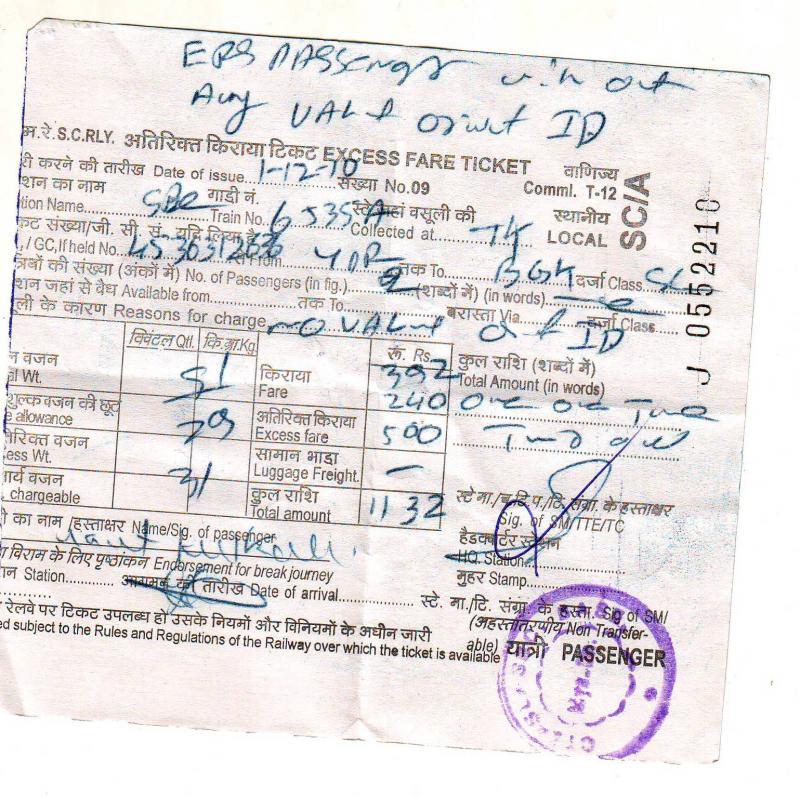 ERS PASSENGR without
Any VALI ID
म.रे. S.C.RLY. अतिरिक्त किराया टिकट EXCESS FARE TICKET वाणिज्य
री करने की तारीख Date of issue 1-12-10 संख्या No.09 Comml. T-12
शन का नाम गाडी नं. स्टे जहां वसूली की स्थानीय SC/A
tion Name SBC Train No. 6535A Collected at LOCAL
J 0552210
कट संख्या/जी. सी. सं. यदि लिया है
. / GC, If held No. From YPR तक To BGK दर्जा Class SL
त्रिओं की संख्या (अंकों में) No. of Passengers (in fig.) 2 (शब्दों में) (in words)
शन जहां से वैध Available from तक To बरास्ता Via दर्जा Class
ली के कारण Reasons for charge NO VALI ID
क्विंटल Qtl. कि.ग्रा.Kg. रू. Rs.
न वजन किराया 392 कुल राशि (शब्दों में)
l Wt. Fare Total Amount (in words)
शुल्क वजन की छूट 240 One one Three
e allowance अतिरिक्त किराया
तिरिक्त वजन Excess fare 500 Two
cess Wt. सामान भाडा
ार्य वजन 31 Luggage Freight. –
chargeable कुल राशि 1132 स्टे मा./च.टि.प./टि. संग्रा. के हस्ताक्षर
Total amount Sig. of SM/TTE/TC
ी का नाम /हस्ताक्षर Name/Sig. of passenger हैडक्वार्टर स्टेशन
HQ. Station
ा विराम के लिए पृष्ठांकन Endorsement for break journey मुहर Stamp
न Station आगमन की तारीख Date of arrival स्टे. मा./टि. संग्रा. के हस्ता. Sig of SM/
रेलवे पर टिकट उपलब्ध हो उसके नियमों और विनियमों के अधीन जारी (अहस्तांतरणीय Non Transfer-
ed subject to the Rules and Regulations of the Railway over which the ticket is available able) यात्री PASSENGER